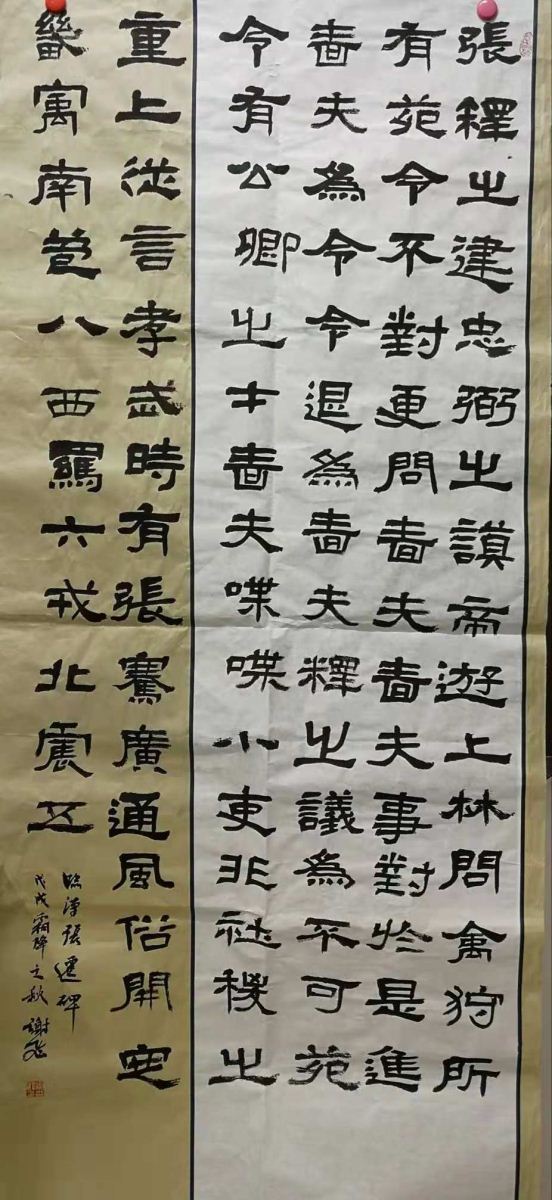 張釋之建忠弼之謨帝遊上林問禽狩所
有苑令不對更問嗇夫嗇夫事對於是進
嗇夫為令令退為嗇夫釋之議為不可苑
令有公卿之才嗇夫喋喋小吏非社稷之
重上從言孝武時有張騫廣通風俗開定
畿寓南苞八西羈六戎北震五
臨漢張遷碑
戊戌霜降之秋 謝